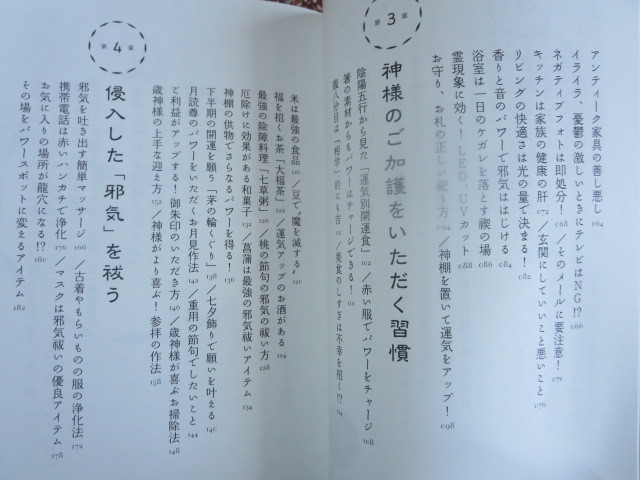 アンティーク家具の善し悪し 064
イライラ、憂鬱の激しいときにテレビはNG!? 066
ネガティブフォトは即処分! 068/そのメールに要注意! 070
キッチンは家族の健康の肝 072/玄関にしていいこと悪いこと 076
リビングの快適さは光の量で決まる! 082
香りと音のパワーで邪気をはじける 084
浴室は一日のケガレを落とす禊の場 086
霊現象に効く! LED、UVカット 088
お守り、お札の正しい祀り方 094/神棚を置いて運気をアップ! 098
第3章
神様のご加護をいただく習慣
陰陽五行から見た「運気別開運食」 102/赤い服でパワーをチャージ 108
箸の素材からもパワーはチャージできる! 111
腹八分目は「相学」的にも吉 112/美食のしすぎは不幸を招く!? 114
米は最強の食品 116/豆で"魔を滅する" 120
福を招くお茶「大福茶」 122/運気アップのお酒がある 124
最強の除障料理「七草粥」 126/桃の節句の邪気の祓い方 128
厄除けに効果がある和菓子 131/菖蒲は最強の邪気祓いアイテム 134
神棚の供物でさらなるパワーを得る! 136
下半期の開運を願う「茅の輪くぐり」 138/七夕飾りで願いを叶える 140
月読尊のパワーをいただくお月見作法 142/重用の節句でしたいこと 144
ご利益がアップする! 御朱印のいただき方 146/歳神様が喜ぶお掃除法 148
歳神様の上手な迎え方 152/神様がより喜ぶ! 参拝の作法 158
第4章
侵入した「邪気」を祓う
邪気を吐き出す簡単マッサージ 166/古着やもらいものの服の浄化法 172
携帯電話は赤いハンカチで浄化 176/マスクは邪気祓いの優良アイテム 178
お気に入りの場所が龍穴になる!? 180
その場をパワースポットに変えるアイテム 182